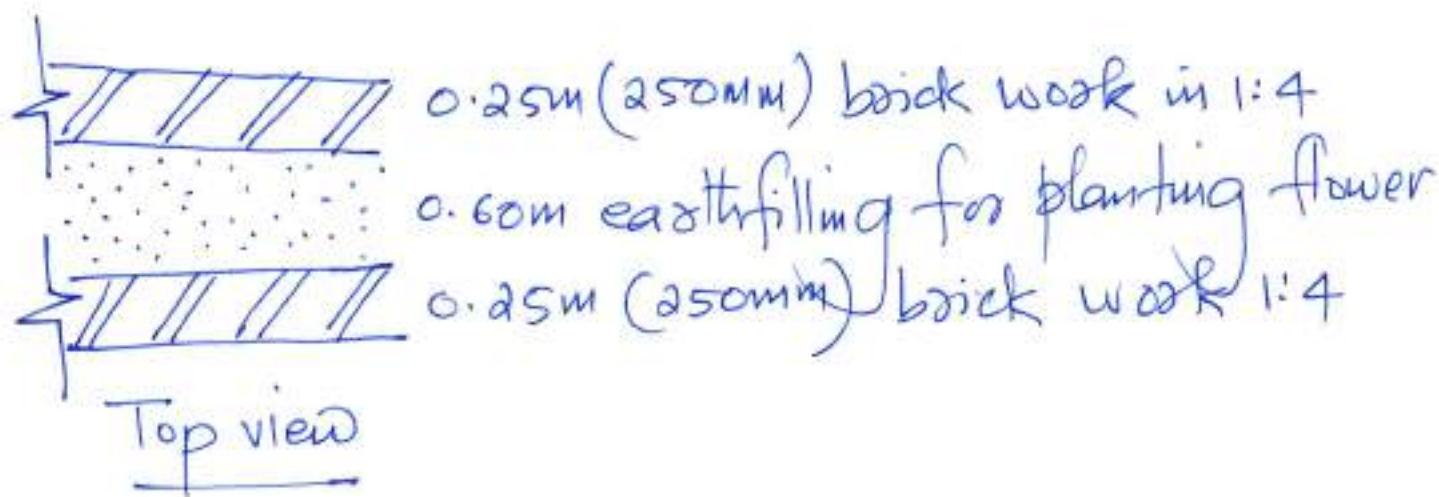 0.25m (250mm) brick work in 1:4
0.60m earthfilling for planting flower
0.25m (250mm) brick work 1:4
Top view